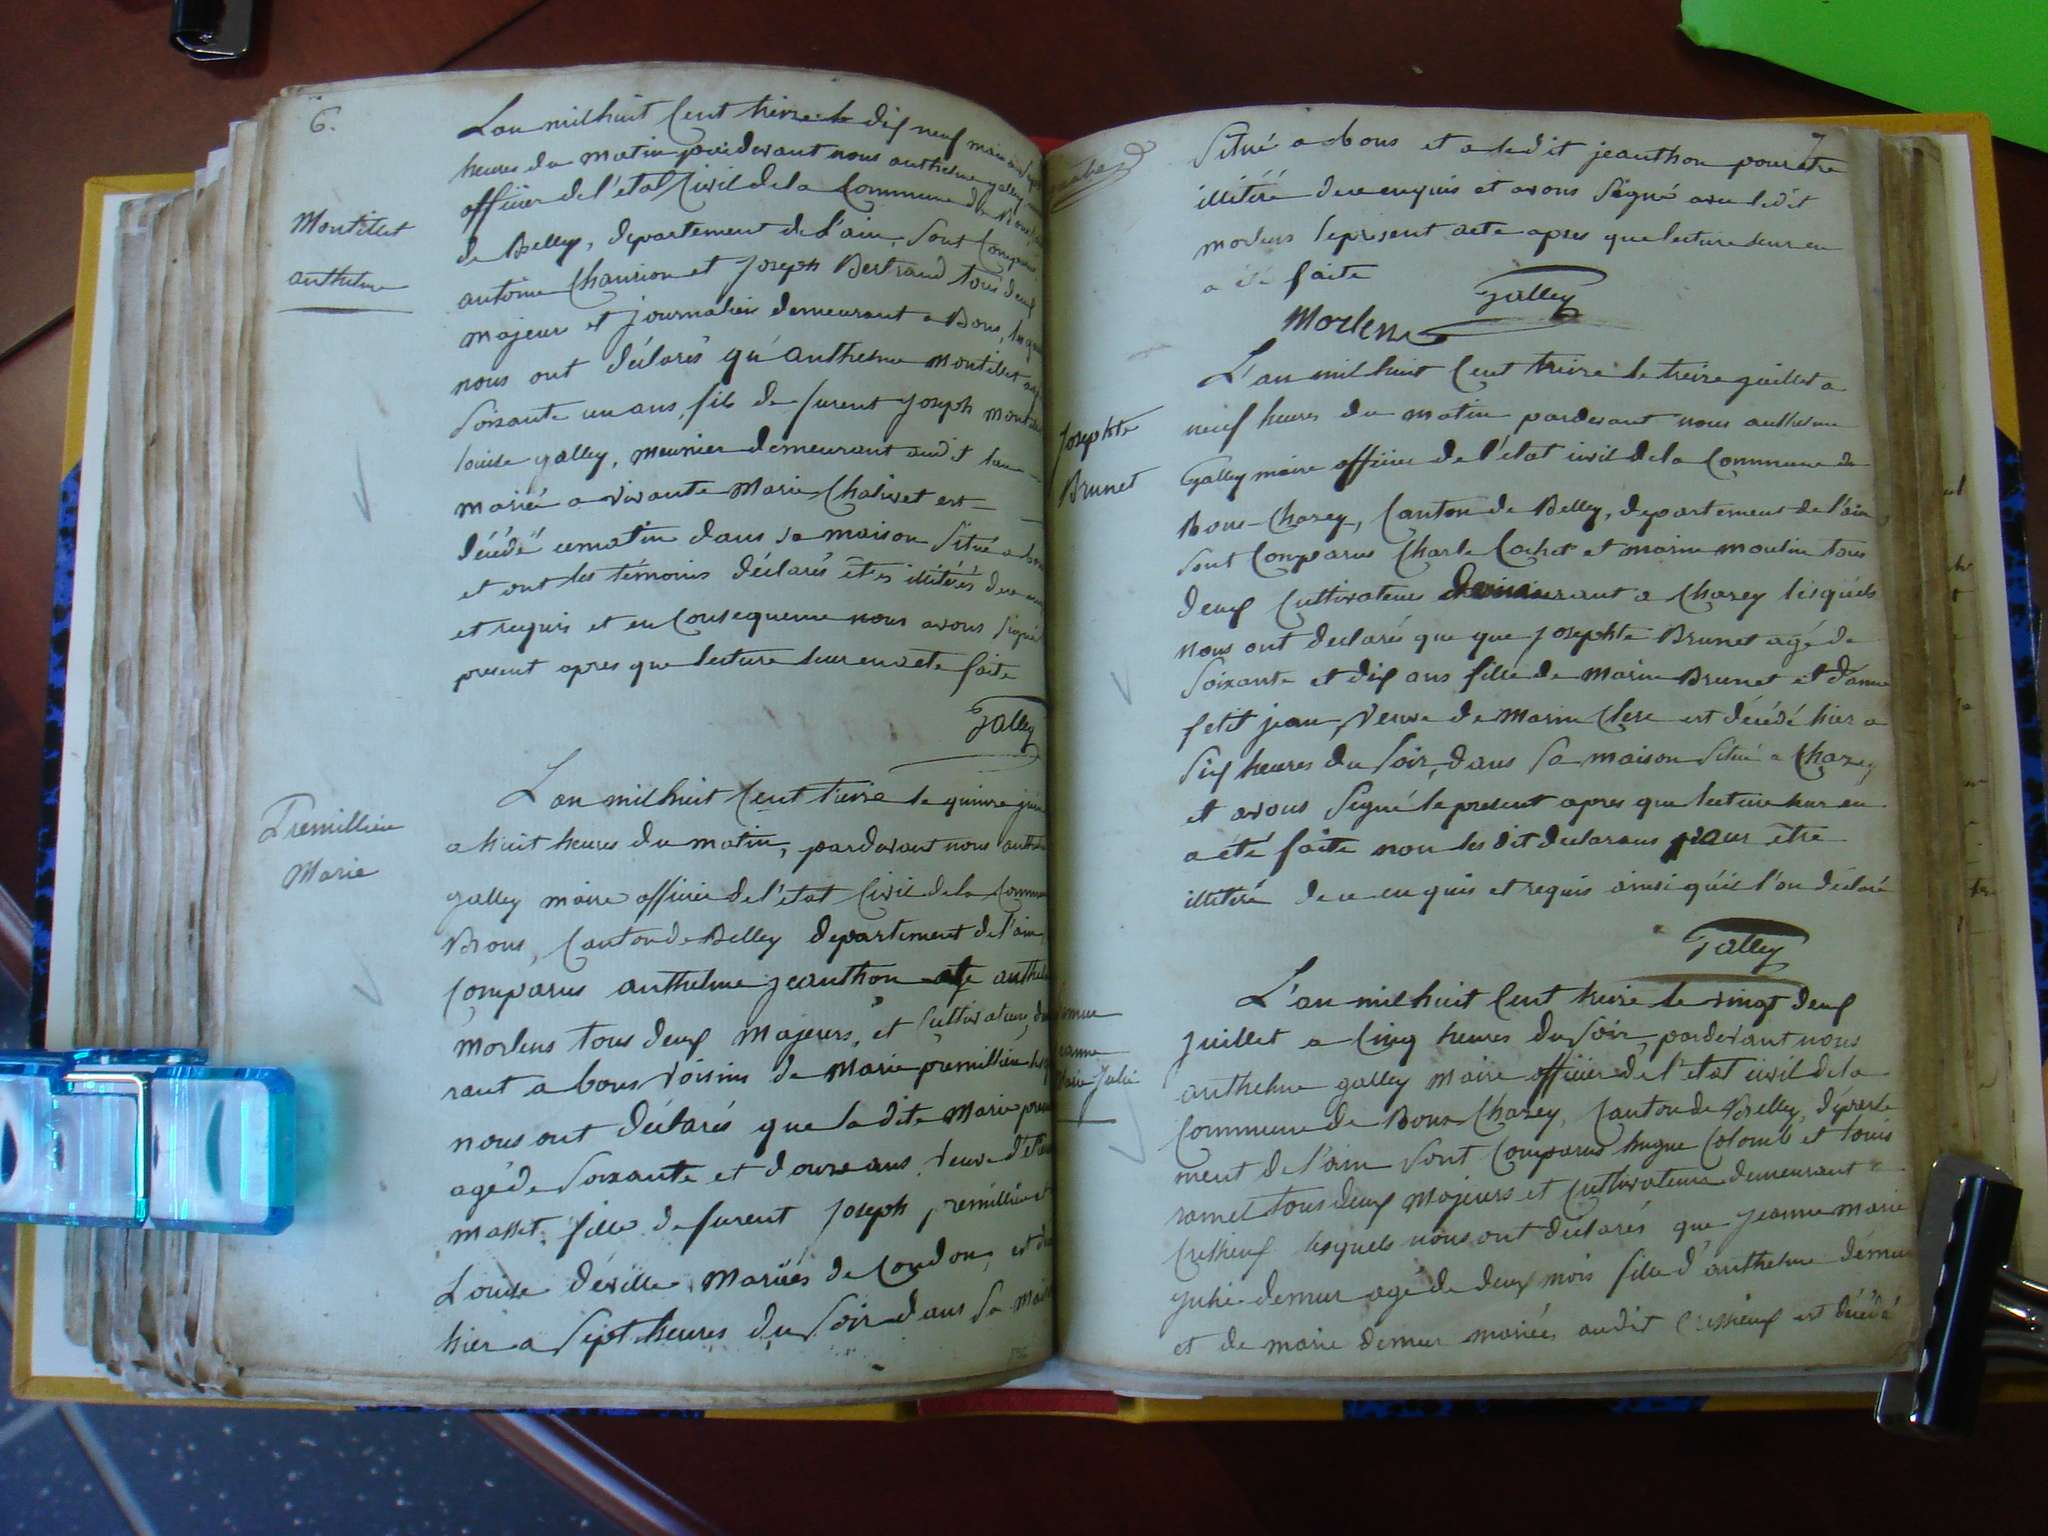 6.
Montillet
anthelme
L'an mil huit Cent treize le dix neuf mai
heures du matin pardevant nous anthelme galley
officier de l'état Civil de la Commune de Bons,
de Belley, departement de l'ain, sont Comparus
antoine Chaurion et Joseph Bertrand tous deux
majeur et journalier demeurant a Bons,
nous ont déclarés qu'anthelme Montillet agé
soixante un ans, fils de furent Joseph
louise galley, meunier demeurant audit lieu
marié a vivante Marie Chalivet est
décédé ce matin dans sa maison situé a
et ont les témoins déclarés êtres illitérés de ce
et requis et en Consequence nous avons signé
present apres que lecture leur en a ete faite
Galley
Premillieu
Marie
L'an mil huit Cent treize le quinze juin
a huit heures du matin, pardevant nous
galley maire officier de l'état Civil de la Commune
Bons, Canton de Belley departement de l'ain,
Comparus anthelme jeanthon et
morlens tous deux majeurs, et Cultivateurs,
rant a bons voisins de Marie premillieu
nous ont déclarés que la dite Marie
agé de soixante et douze ans, veuve
masset, fille de furent Joseph premillieu
Louise déville mariés de Condon, est
hier a sept heures du soir dans sa
7
situé a bons et a ledit jeanthon pour etre
illitéré de ce enquis et avons signé avec ledit
morlens le présent acte apres que lecture leur en
a été faite
Galley
Morlens
Josephte
Brunet
L'an mil huit Cent treize le treize juillet a
neuf heures du matin pardevant nous anthelme
Galley maire officier de l'état civil de la Commune de
Bons-Chazey, Canton de Belley, departement de l'ain
sont Comparus Charle Cochet et marin moulin tous
deux Cultivateurs demeurant a Chazey lesquels
nous ont declarés que que Josephte Brunet agé de
soixante et dix ans fille de Marin Brunet et d'anne
petit jean, veuve de Marin Clerc est décédé hier a
six heures du soir, dans sa maison situé a Chazey
et avons signé le present apres que lecture leur en
a été faite non les dit declarans pour être
illitéré de ce enquis et requis ainsi qu'il l'on déclaré
Galley
Jeanne
Marie Julie
L'an mil huit Cent treize le vingt deux
juillet a Cinq heures du soir, pardevant nous
anthelme galley Maire officier de l'etat civil de la
Commune de Bons Chazey, Canton de Belley, départe
ment de l'ain sont Comparus hugue Colomb et louis
ramel tous deux Majeurs et Cultivateurs demeurant a
Cressieux lesquels nous ont déclarés que Jeanne Marie
Julie demeur agé de deux mois fille d'anthelme démeur
et de marie demeur mariés audit Cressieux est décédé